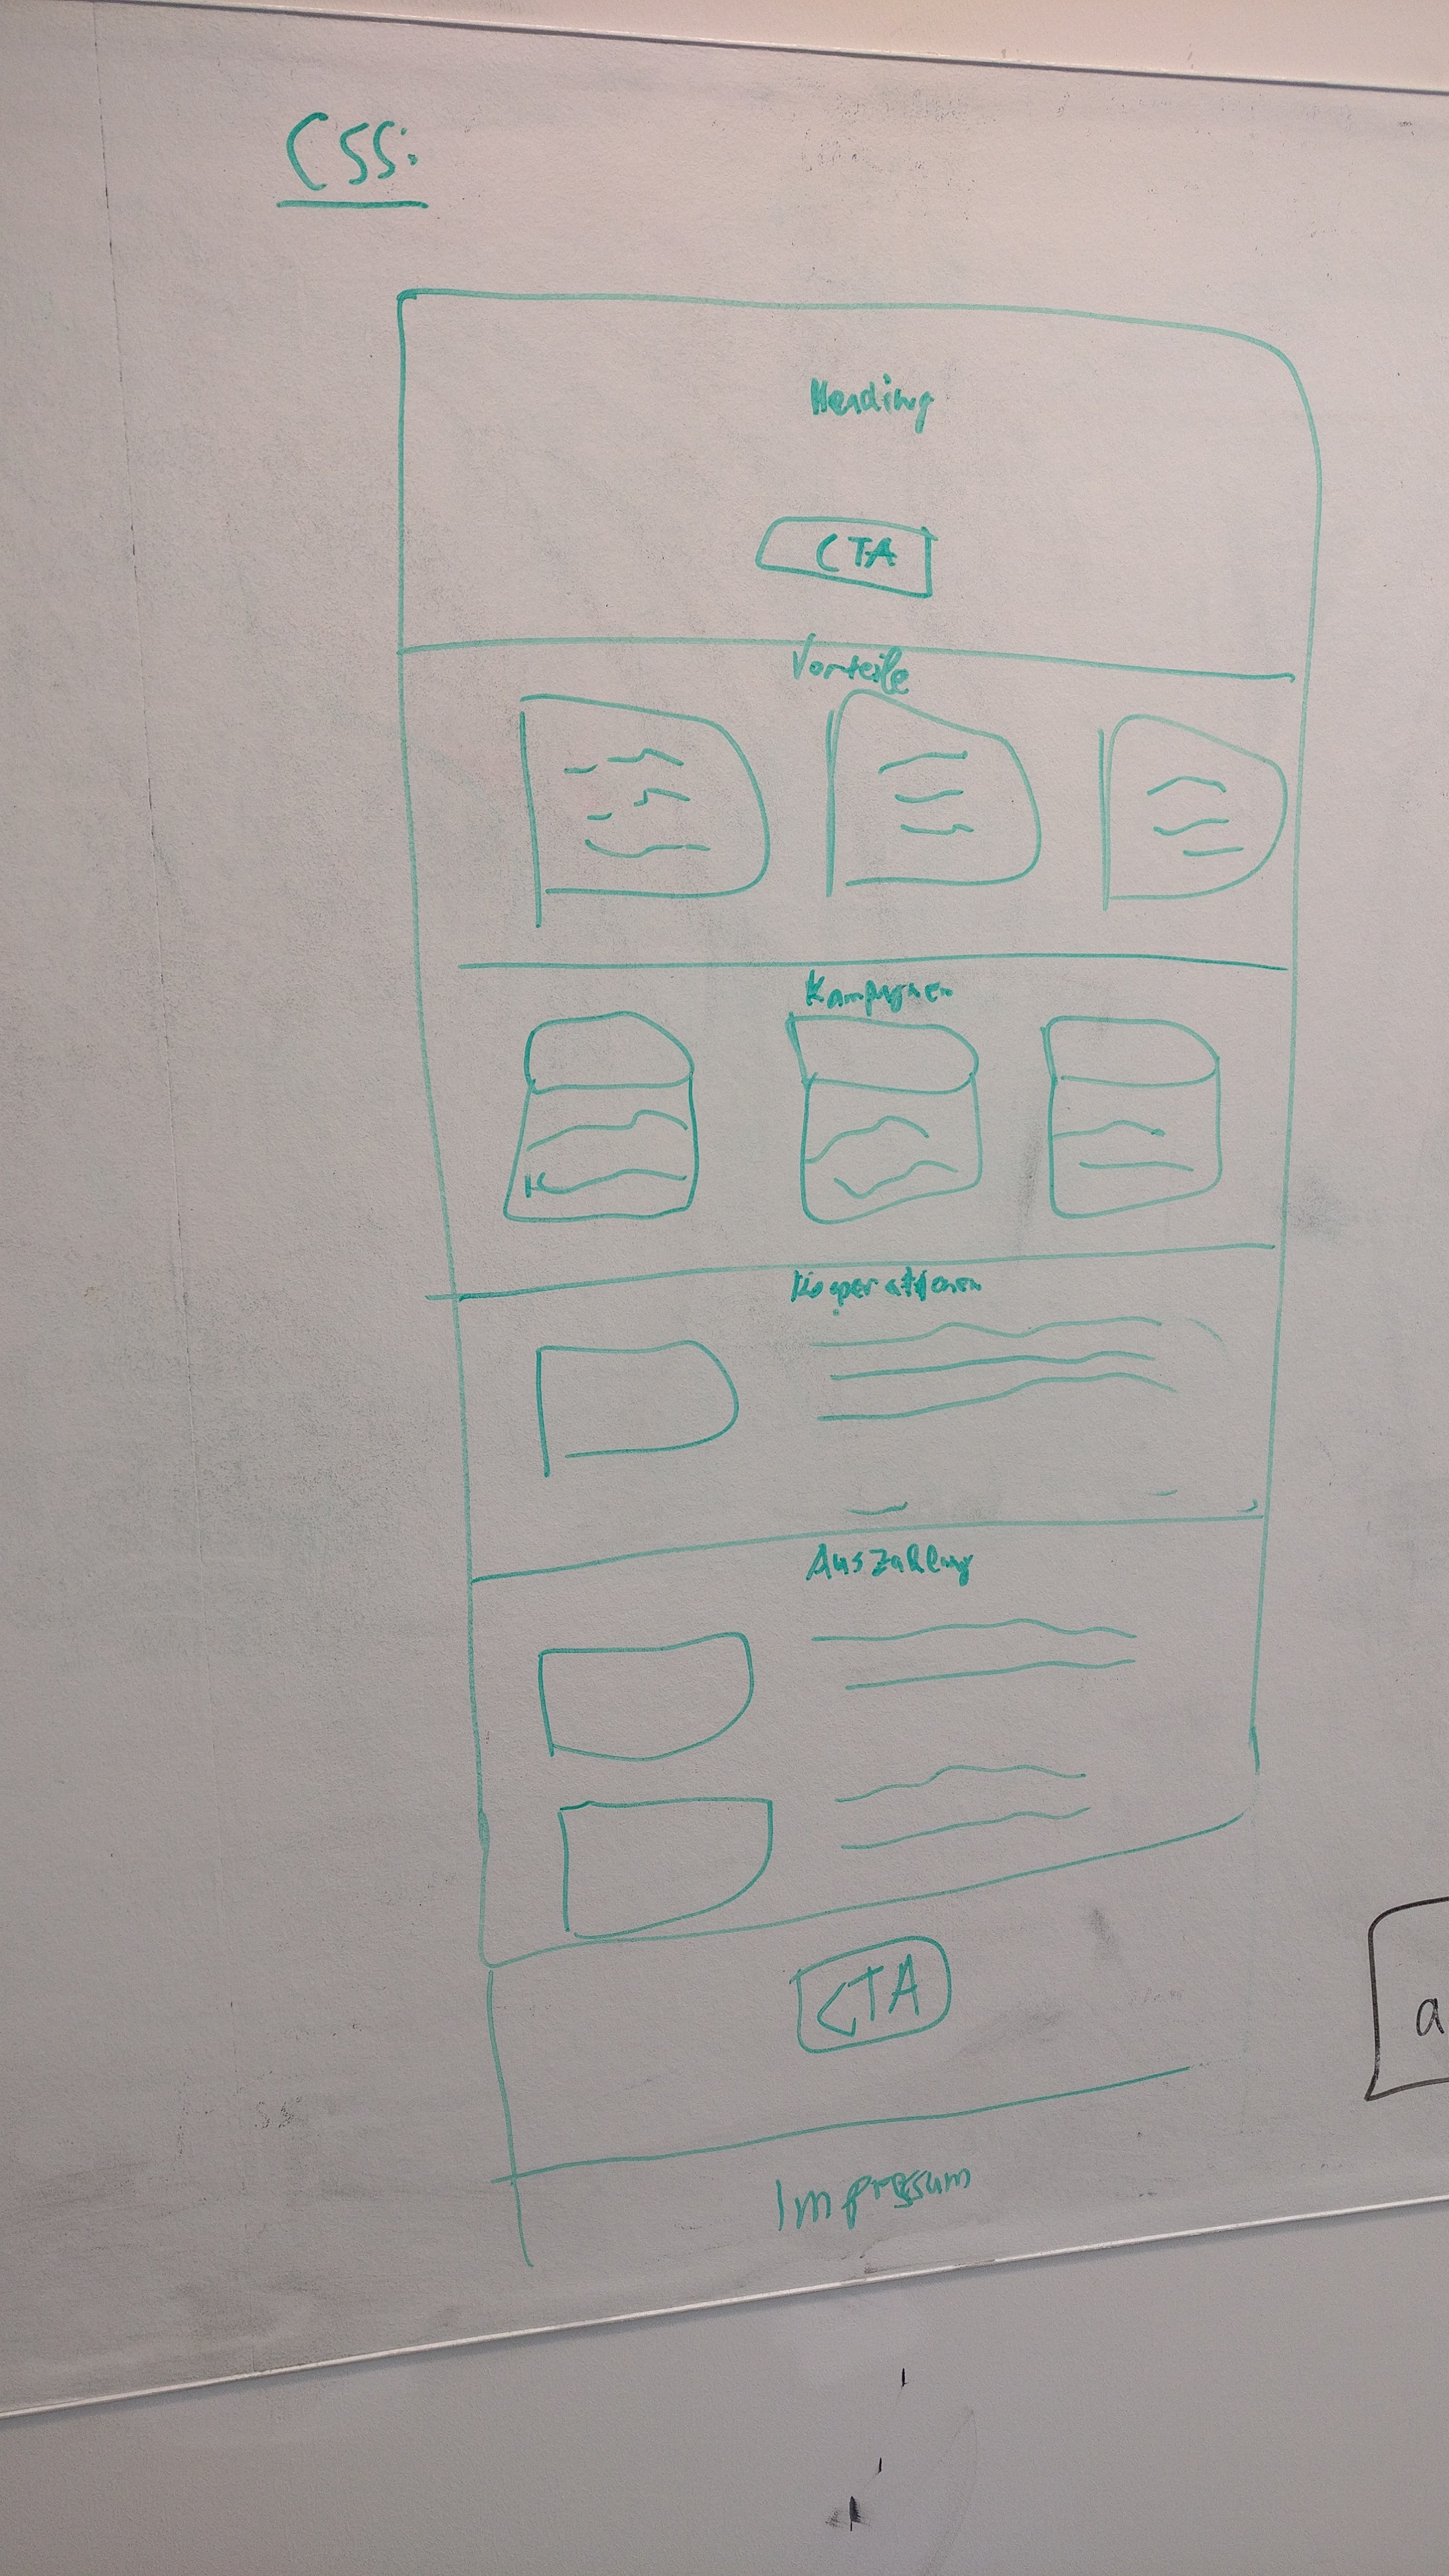 CSS:
Heading
CTA
Vorteile
Kampagnen
Kooperationen
Auszahlung
CTA
a
Impressum